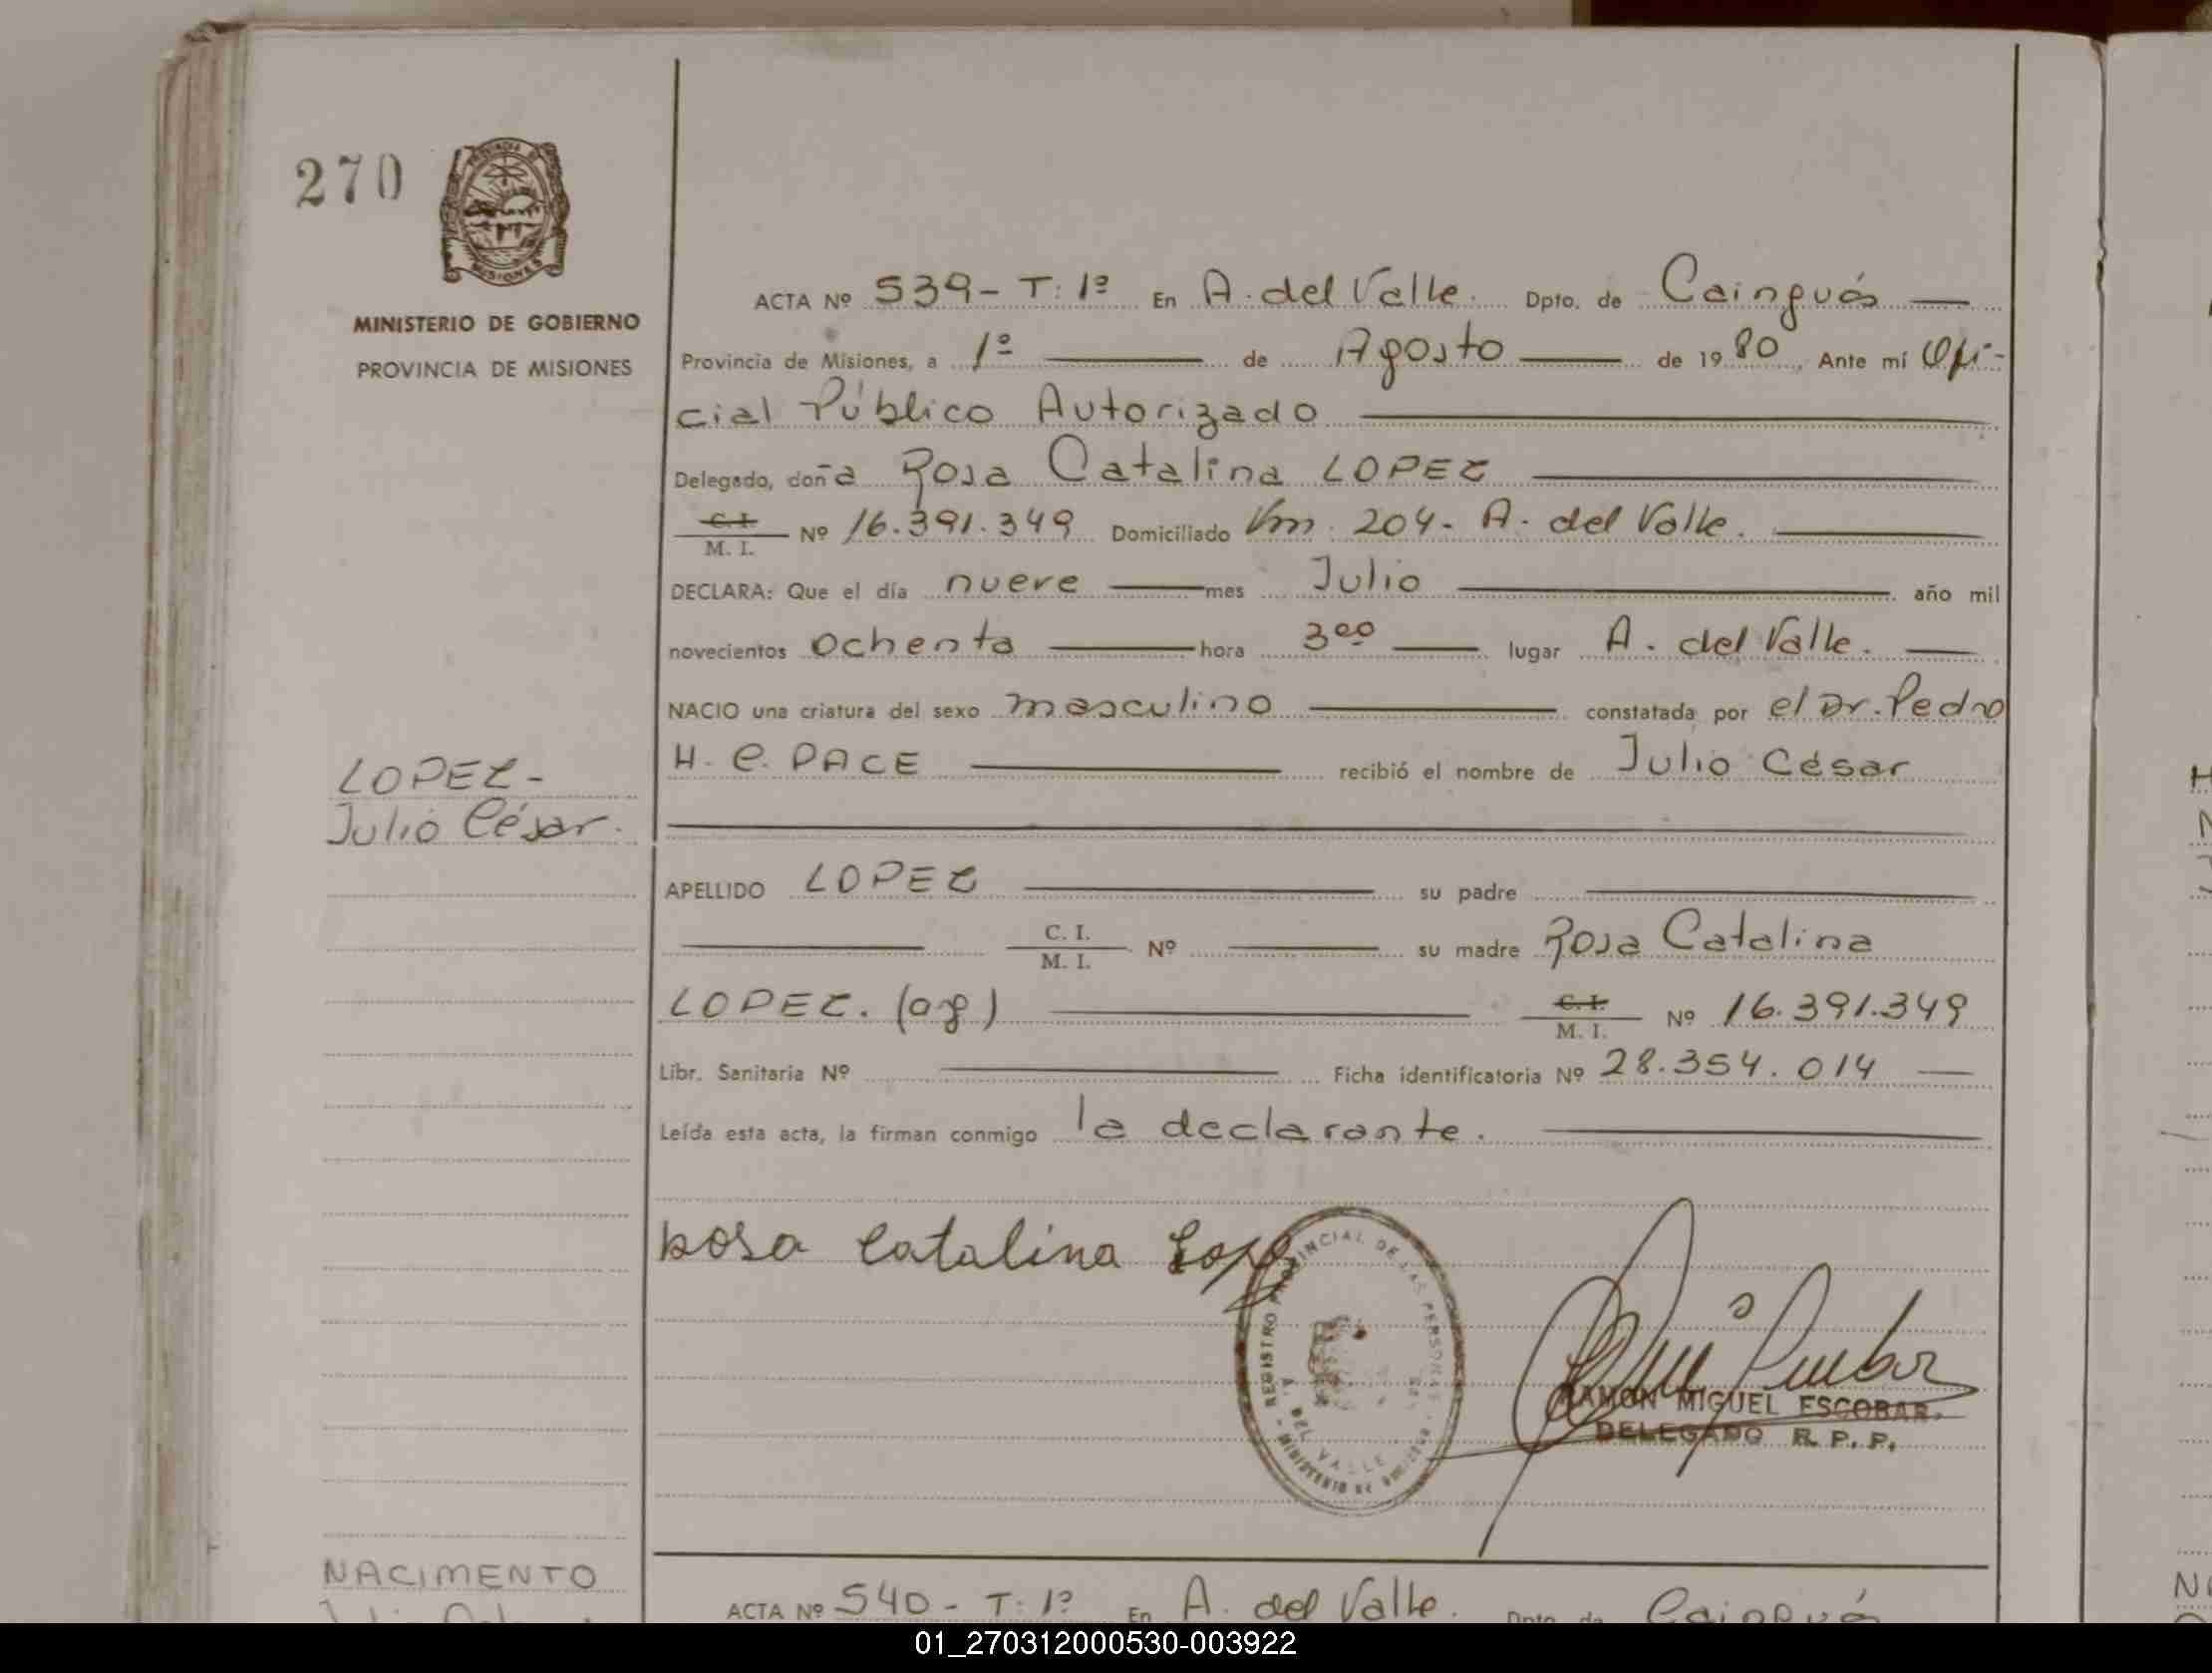 270
PROVINCIA DE
MISIONES
MINISTERIO DE GOBIERNO
PROVINCIA DE MISIONES
ACTA Nº 539 - T: 1º En A. del Valle. Dpto. de Cainguás
Provincia de Misiones, a 1º de Agosto de 1980, Ante mí Ofi-
cial Público Autorizado
Delegado, doña Rosa Catalina LOPEZ
C.I. / M. I. Nº 16.391.349 Domiciliado Km. 204 - A. del Valle.
DECLARA: Que el día nueve mes Julio año mil
novecientos ochenta hora 3⁰⁰ lugar A. del Valle.
NACIO una criatura del sexo masculino constatada por el Dr. Pedro
H. C. PACE recibió el nombre de Julio César
LOPEZ -
Julio César.
APELLIDO LOPEZ su padre
C. I. / M. I. Nº su madre Rosa Catalina
LOPEZ. (arg) C. I. / M. I. Nº 16.391.349
Libr. Sanitaria Nº Ficha identificatoria Nº 28.354.014
Leída esta acta, la firman conmigo la declarante.
Rosa Catalina Lopez
REGISTRO PROVINCIAL DE LAS PERSONAS
A. DEL VALLE
MINISTERIO DE
RAMON MIGUEL ESCOBAR
DELEGADO R. P. P.
NACIMENTO
ACTA Nº 540 - T: 1º En A. del Valle. Dpto. de Cainguás
01_270312000530-003922